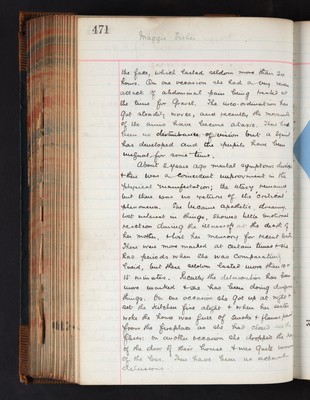 471
Maggie
the face, which lasted seldom more than 24
hours. On one occasion she had a very severe
attack of abdominal pain being treated at
the time for Gravel. The inco-ordination has
got steadily worse, and recently the movements
of the arms have become ataxic. There has
been no disturbance of vision but a squint
has developed and the pupils have been
unequal for some time.
About 2 years ago mental symptoms
& there was a coincident improvement in the
physical manifestations; the ataxy remained
but there was no return of the critical
phenomena. She became apathetic, dreamy,
lost interest in things, showed little emotional
reaction during the illness or at the death of
her mother, & lost her memory for recent
These were more marked at certain times & she
has periods when she was comparatively
lucid, but these seldom lasted more than 10 or
15 minutes. Recently the has been
more marked & she has been doing dangerous
things. On one occasion she got up at night &
set the kitchen fire alight & when her sister
woke the house was full of smoke & flames
from the fireplace as she had closed the
On another occasion she dropped the
of the door of their house & was quite
of the loss. There have been no
delusions